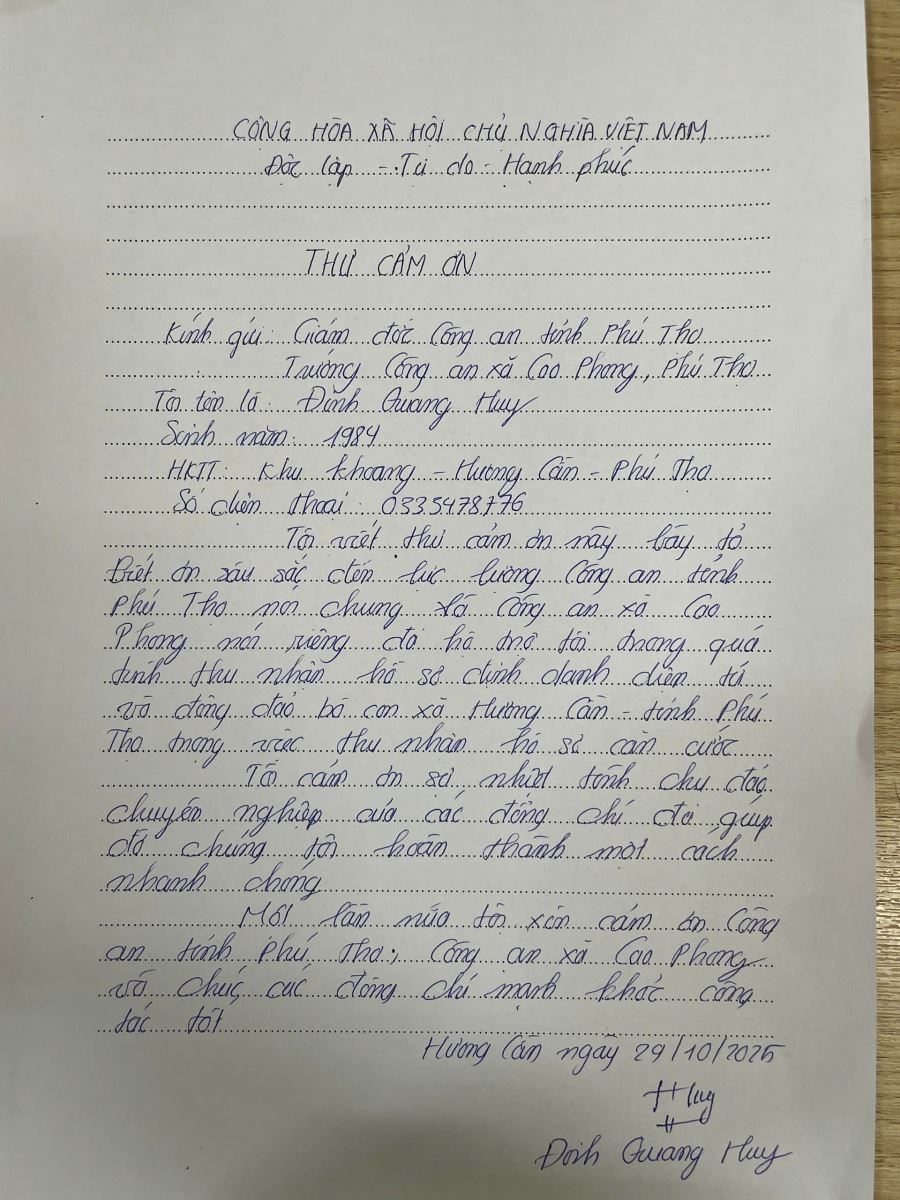 CỘNG HÒA XÃ HỘI CHỦ NGHĨA VIỆT NAM
Độc lập - Tự do - Hạnh phúc
THƯ CẢM ƠN
Kính gửi: Giám đốc Công an tỉnh Phú Thọ
Trưởng Công an xã Cao Phong, Phú Thọ
Tôi tên là: Đinh Quang Huy
Sinh năm: 1984
HKTT: Khu khoang - Hương Cần - Phú Thọ
Số điện thoại: 0335478776
Tôi viết thư cảm ơn này bày tỏ
biết ơn sâu sắc đến lực lượng Công an tỉnh
Phú Thọ nói chung và Công an xã Cao
Phong nói riêng đã hỗ trợ tôi trong quá
trình thu nhận hồ sơ định danh điện tử
và đông đảo bà con xã Hương Cần - tỉnh Phú
Thọ trong việc thu nhận hồ sơ căn cước
Tôi cảm ơn sự nhiệt tình chu đáo
chuyên nghiệp của các đồng chí đã giúp
đỡ chúng tôi hoàn thành một cách
nhanh chóng
Một lần nữa tôi xin cảm ơn Công
an tỉnh Phú Thọ, Công an xã Cao Phong
và chúc các đồng chí mạnh khỏe công
tác tốt
Hương Cần ngày 29/10/2025
Huy
Đinh Quang Huy